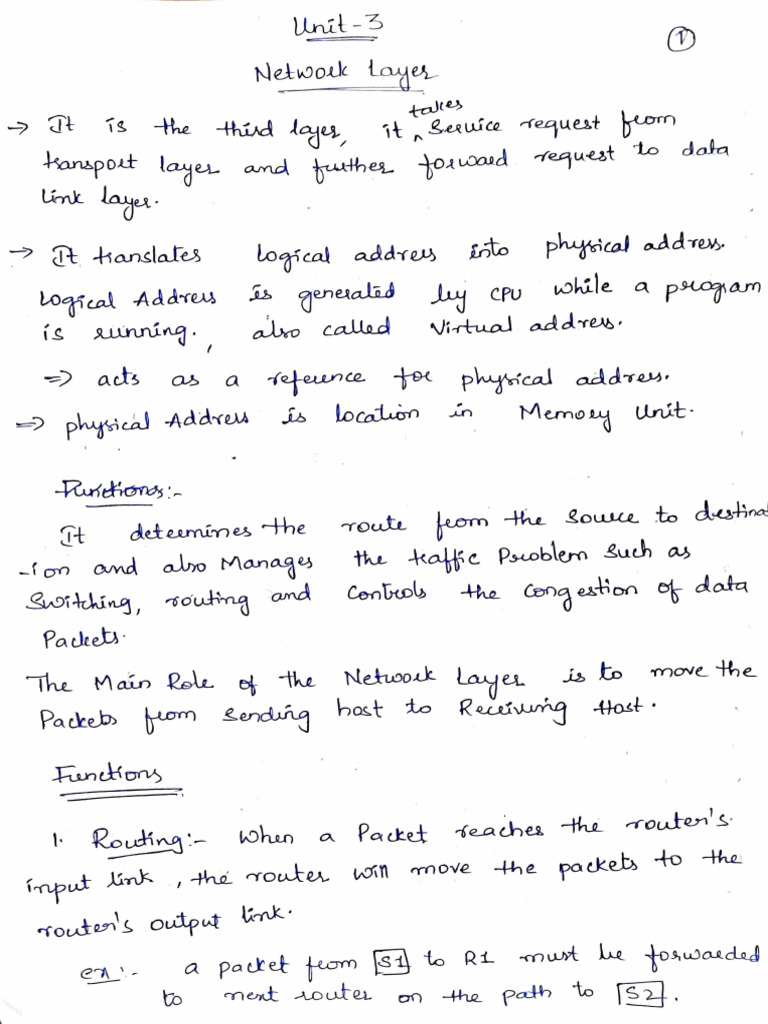 Unit-3
1
Network Layer
→ It is the third layer, it takes Service request from
transport layer and further forward request to data
link layer.
→ It translates logical address into physical address.
Logical Address is generated by CPU while a program
is running., also called Virtual address.
=> acts as a reference for physical address.
=> physical Address is location in Memory Unit.
Functions:-
It determines the route from the source to destinat
-ion and also Manages the traffic Problem Such as
Switching, routing and Controls the congestion of data
Packets.
The Main Role of the Network Layer is to move the
Packets from sending host to Receiving Host.
Functions
1. Routing:- When a Packet reaches the router's
input link, the router will move the packets to the
router's output link.
ex:- a packet from S1 to R1 must be forwarded
to next router on the path to S2.